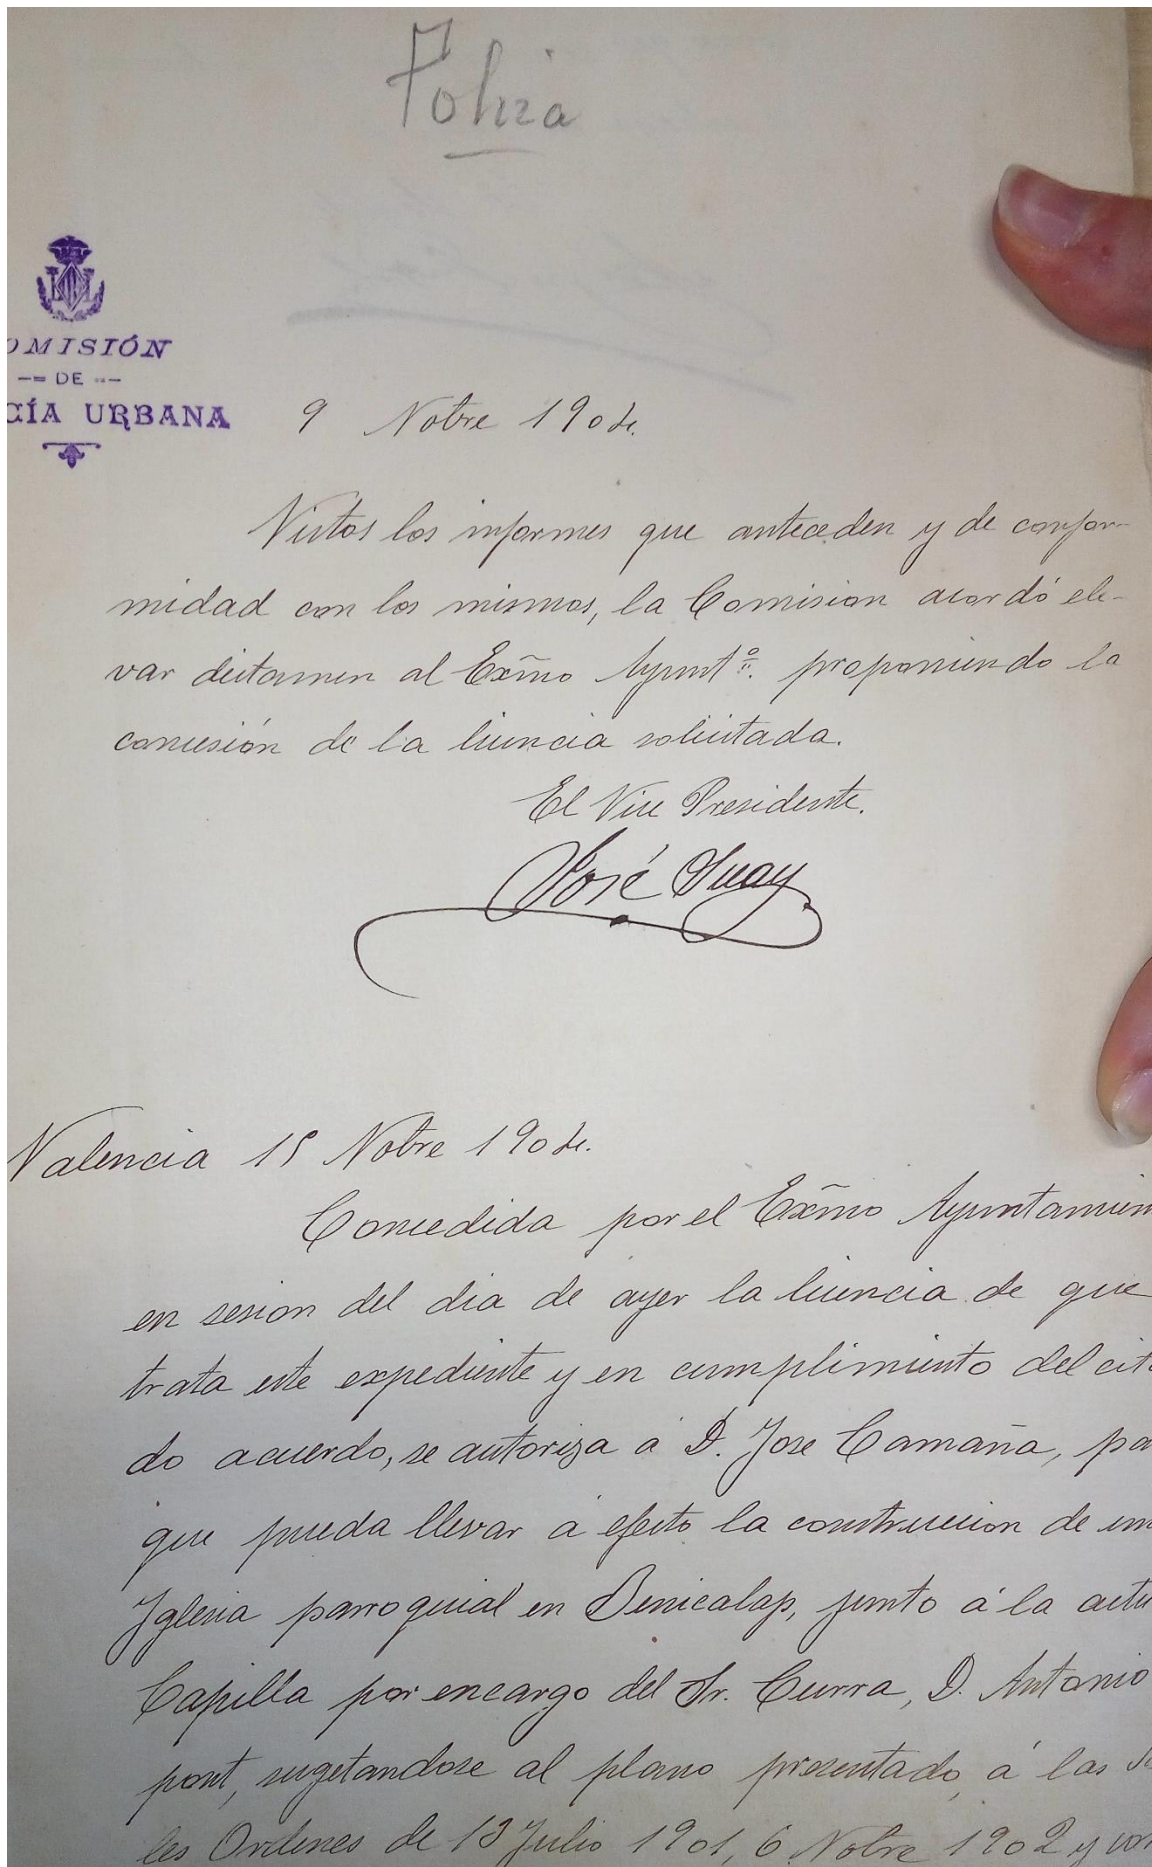 Poliza
OMISIÓN
DE
CÍA URBANA
9 Nobre 1904.
Vistos los informes que anteceden y de confor-
midad con los mismos, la Comision acordó ele-
var dictamen al Exmo Ayuntº. proponiendo la
concesión de la licencia solicitada.
El Vice Presidente.
José Suay
Valencia 15 Nobre 1904.
Concedida por el Exmo Ayuntamien
en sesion del dia de ayer la licencia de que
trata este expediente y en cumplimiento del cit
do acuerdo, se autoriza á D. Jose Camaña, pa
que pueda llevar á efecto la construccion de un
Yglesia parroquial en Benicalap, junto á la actu
Capilla por encargo del Sr. Curra, D. Antonio
pont, sugetandose al plano presentado, á las
les Ordenes de 13 Julio 1901, 6 Nobre 1902 y